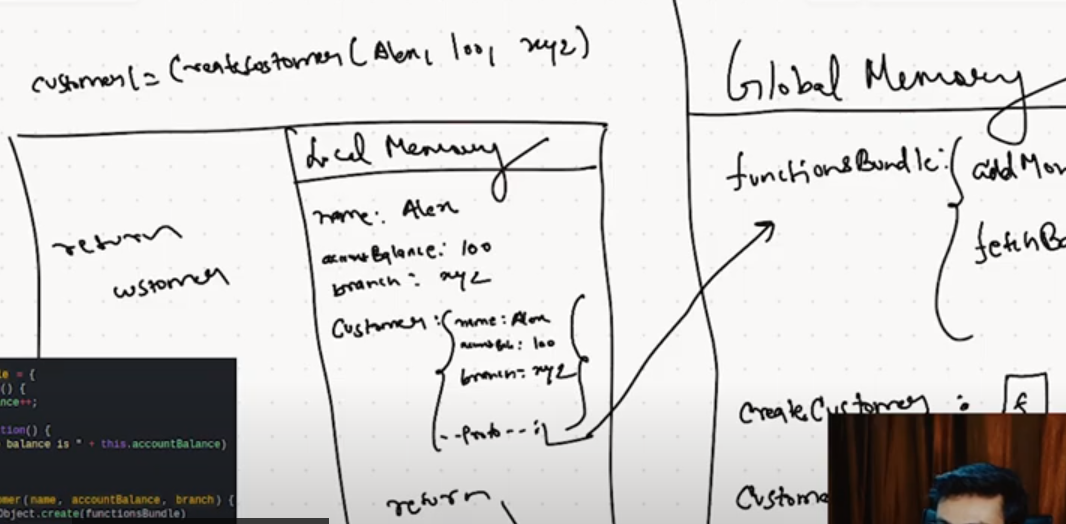 customer1 = CreateCustomer (Alex, 100, xyz)
Local Memory
name: Alex
accountBalance: 100
branch: xyz
Customer: { name: Alex
accountBal: 100
branch: xyz }
--Proto--:
return
return
customer
Global Memory
functionsBundle: { addMon
fetchBa
CreateCustomer : f
Custome
le = {
() {
nce++;
tion() {
balance is " + this.accountBalance)
mer(name, accountBalance, branch) {
Object.create(functionsBundle)